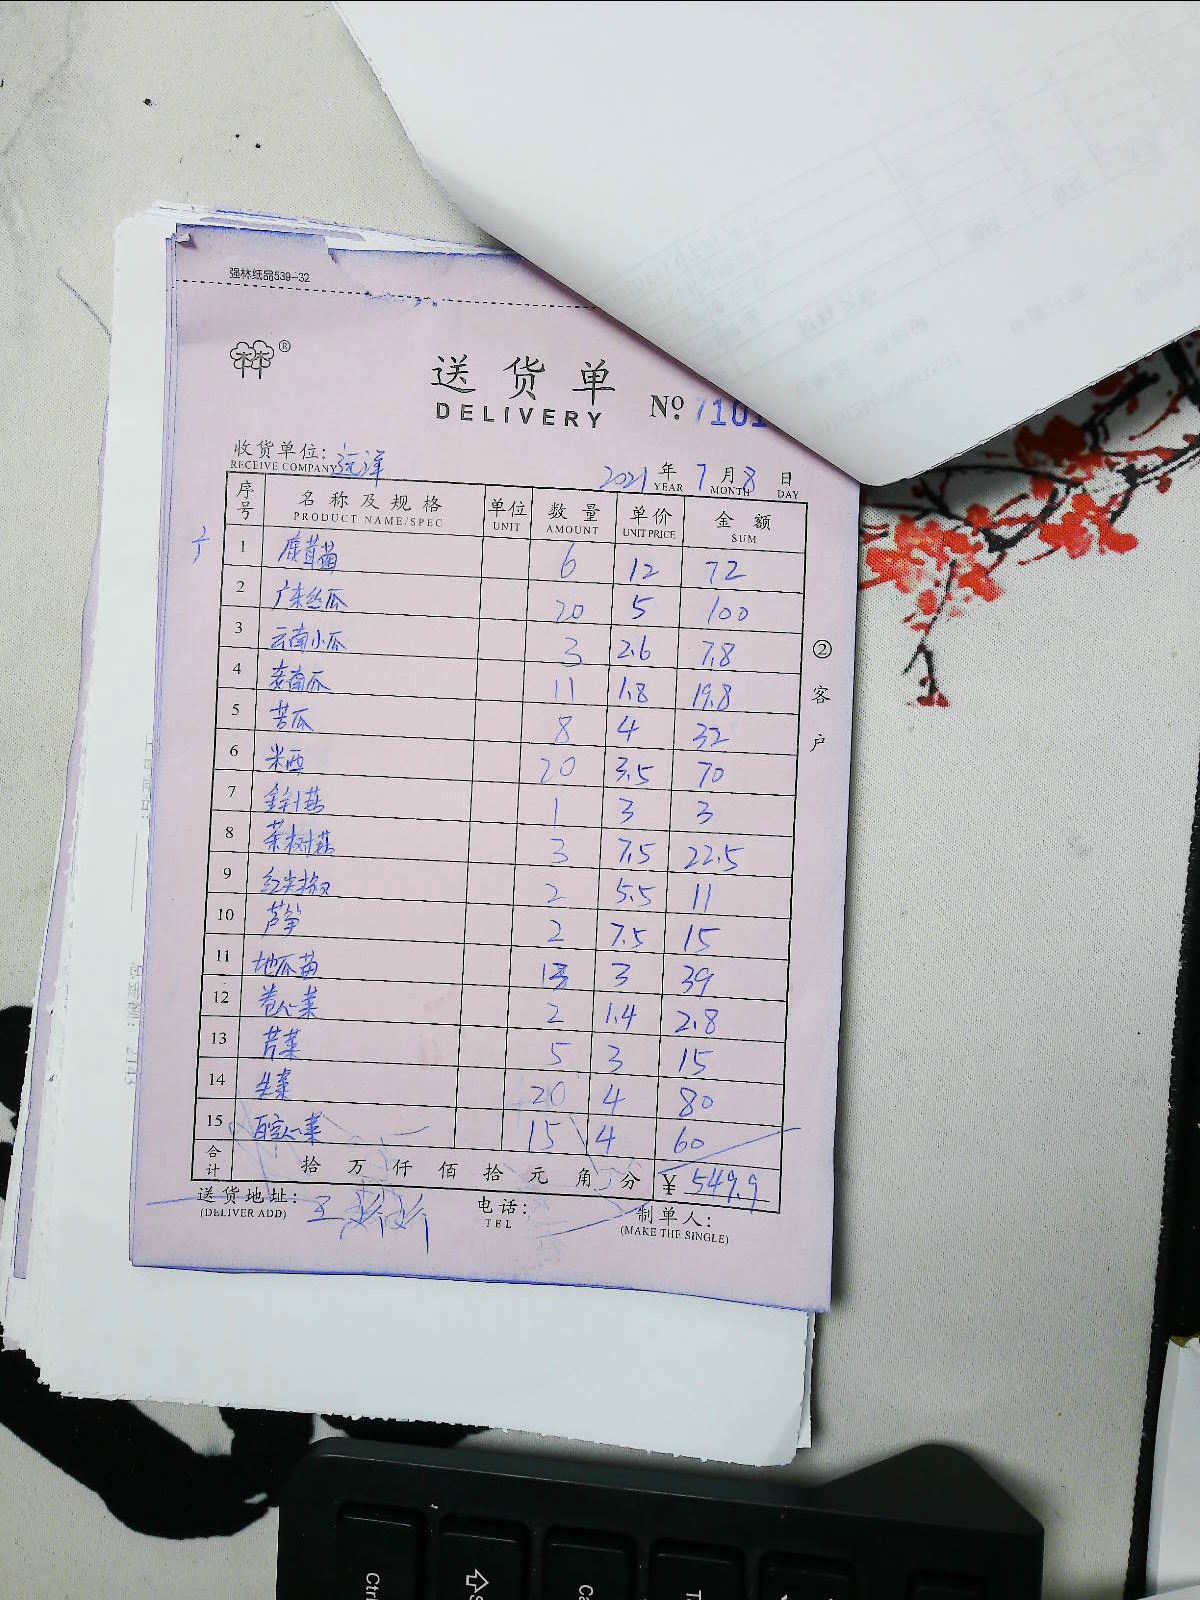 强林纸品539-32
林林®
送货单
DELIVERY
№ 7101
收货单位: 远洋
RECEIVE COMPANY
2021 年 7 月 8 日
YEAR MONTH DAY
序号 名称及规格 单位 数量 单价 金额
PRODUCT NAME/SPEC UNIT AMOUNT UNIT PRICE SUM
1 鹿茸菇 6 12 72
2 广东丝瓜 20 5 100
3 云南小瓜 3 2.6 7.8
4 老南瓜 11 1.8 19.8
5 苦瓜 8 4 32
6 米西 20 3.5 70
7 金针菇 1 3 3
8 茶树菇 3 7.5 22.5
9 红尖椒 2 5.5 11
10 芦笋 2 7.5 15
11 地瓜苗 13 3 39
12 卷心菜 2 1.4 2.8
13 芹菜 5 3 15
14 生菜 20 4 80
15 空心菜 15 4 60
合计 拾 万 仟 佰 拾 元 角 分 ¥ 549.9
送货地址: 电话: 制单人:
(DELIVER ADD) TEL (MAKE THE SINGLE)
②客户
Ctr